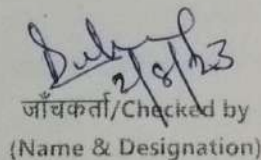 2/8/23
जाँचकर्ता/Checked by
(Name & Designation)